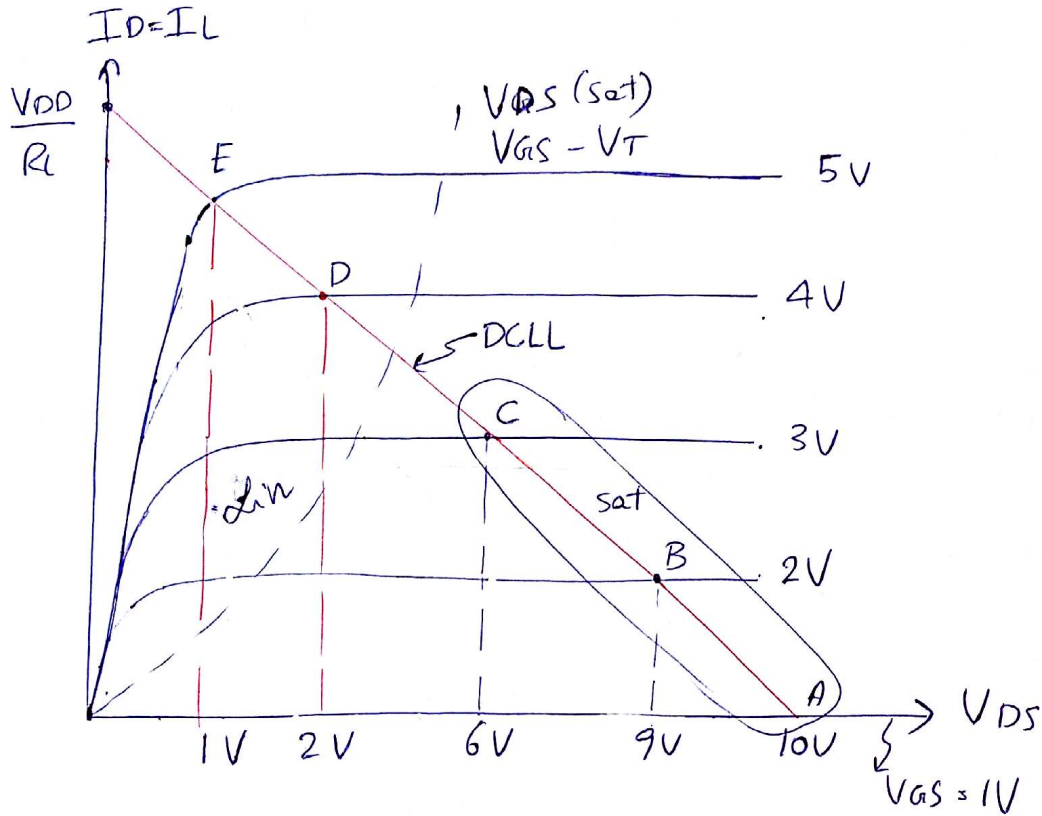 ID=IL
VDD
RL
, VDS (sat)
VGS - VT
E
5V
D
4V
DCLL
C
3V
Lin
sat
B
2V
A
VDS
1V
2V
6V
9V
10V
VGS = 1V